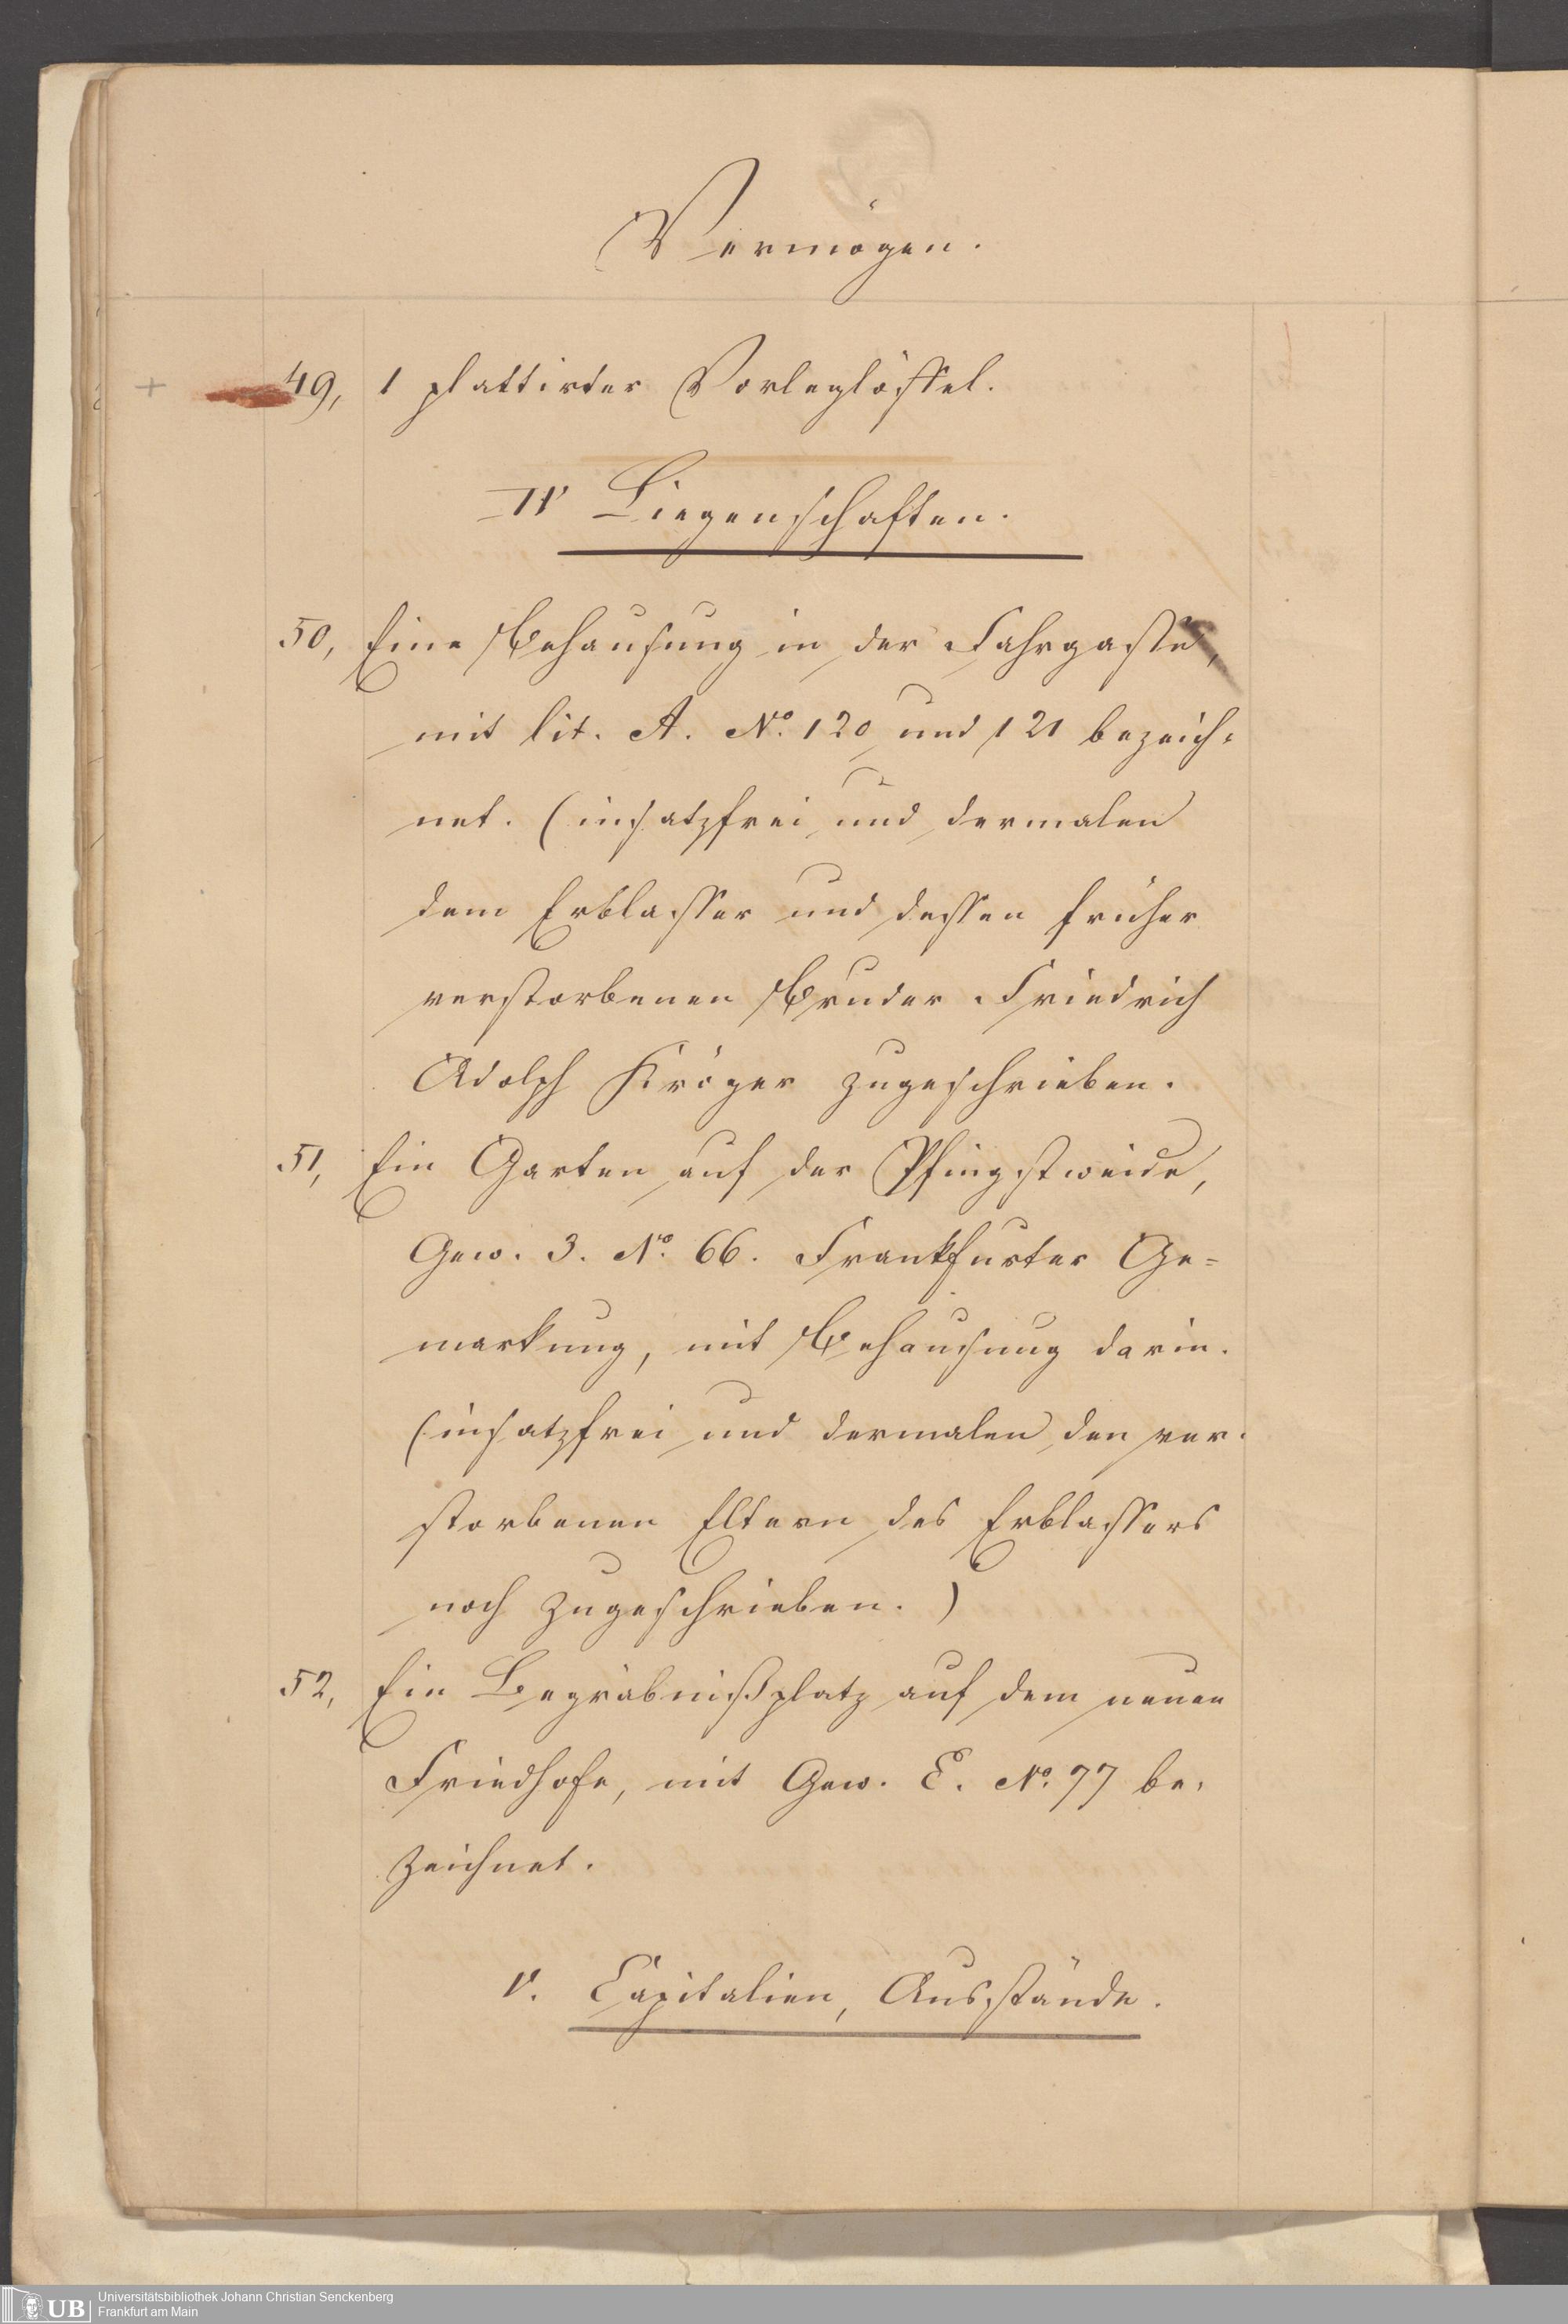 Vermögen.
+ 49, 1 plattirter Vorleglöffel.
IV Liegenschaften.
50, Eine Behausung in der Fahrgasse,
mit lit. A. No. 120 und 121 bezeich-
net. (insatzfrei und dermalen
dem Erblasser und dessen früher
verstorbenen Bruder Friedrich
Adolph Kröger zugeschrieben.
51, Ein Garten auf der Pfingstweide,
Gew. 3. No. 66. Frankfurter Ge=
markung, mit Behausung darin.
(insatzfrei und dermalen den ver-
storbenen Eltern des Erblassers
noch zugeschrieben.)
52, Ein Begräbnißplatz auf dem neuen
Friedhofe, mit Gew. E. No. 77 be-
zeichnet.
V. Capitalien, Ausstände.
UB Universitätsbibliothek Johann Christian Senckenberg
Frankfurt am Main